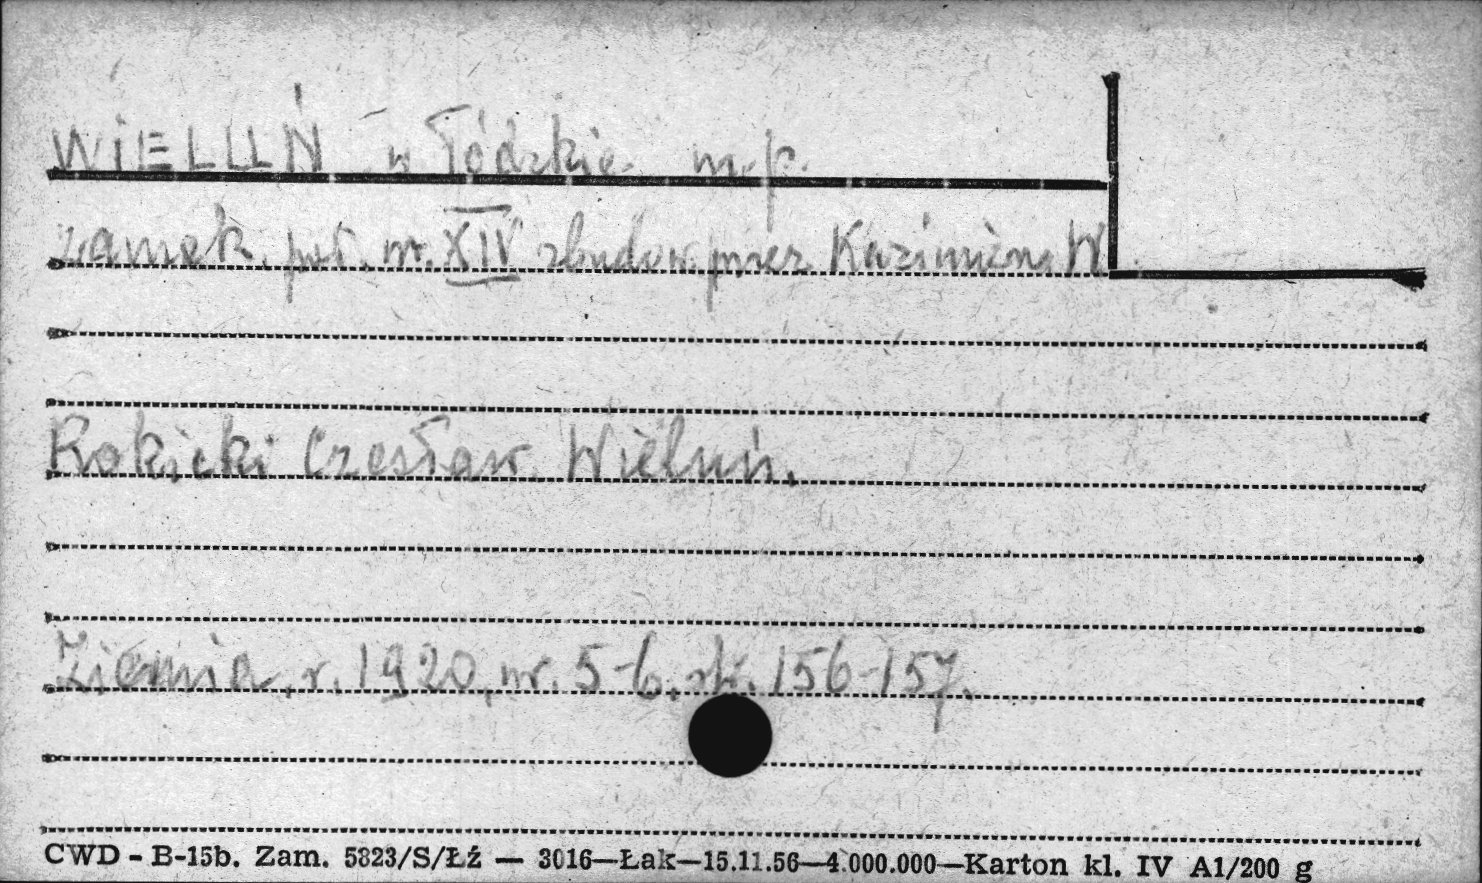 WIELUŃ w łódzkie m.p.
zamek, poł. w. XIV zbudow. przez Kazimierza W.
Rokicki Czesław. Wieluń.
Ziemia, r. 1920, nr. 5-6, str. 156-157.
CWD - B-15b. Zam. 5823/S/Łź — 3016—Łak—15.11.56—4.000.000—Karton kl. IV A1/200 g